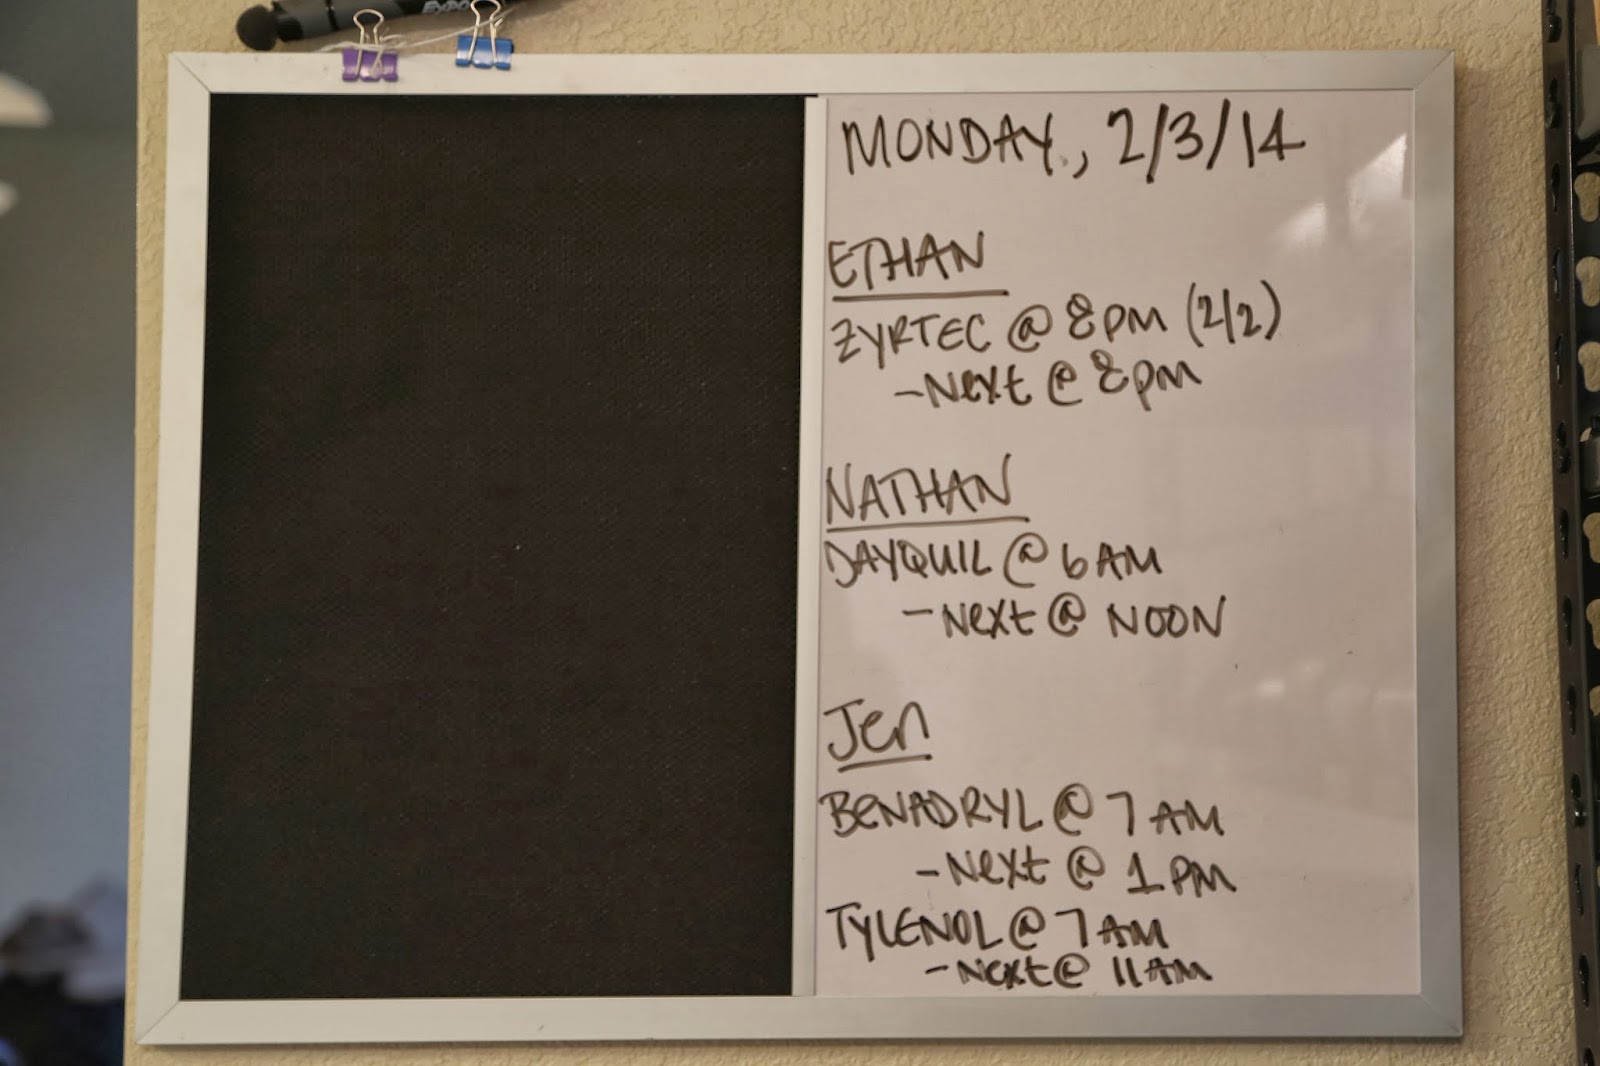 EXPO
MONDAY, 2/3/14
ETHAN
ZYRTEC @ 8PM (2/2)
- Next @ 8PM
NATHAN
DAYQUIL @ 6 AM
- Next @ NOON
Jen
BENADRYL @ 7 AM
- Next @ 1 PM
TYLENOL @ 7 AM
- Next @ 11 AM